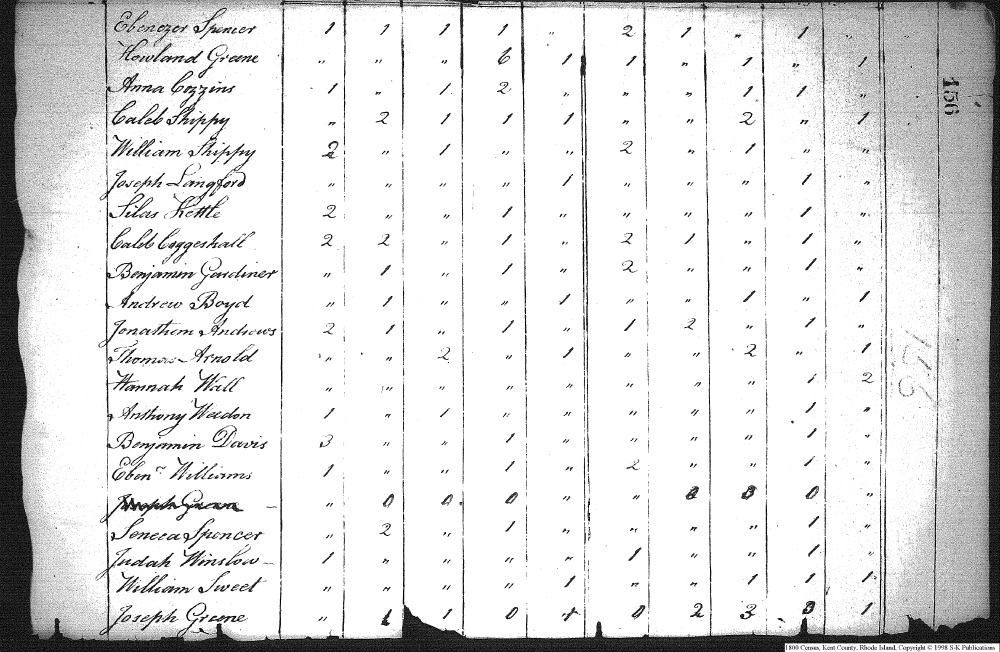 Ebenezer Spencer 1 1 1 1 " 2 1 " 1
Howland Greene " " " 6 1 1 " 1 " 1
Anna Cozzins 1 " 1 2 " " " 1 1 "
Caleb Shippy " 2 1 1 1 " " 2 " 1
William Shippy 2 " 1 " " 2 " 1 " "
Joseph Langford " " " " 1 " " " 1 "
Silas Kettle 2 " " 1 " " " " 1 "
Caleb Coggeshall 2 2 " 1 " 2 1 " 1 "
Benjamin Gardiner " 1 " 1 " 2 " " 1 "
Andrew Boyd " 1 " " 1 " " 1 " 1
Jonathem Andrews 2 1 " 1 " 1 2 " 1 "
Thomas Arnold " " 2 " 1 " " 2 " 1
Hannah Wall " " " " " " " " 1 2
Anthony Weedon 1 " 1 " " " " " 1 "
Benjamin Davis 3 " " 1 " " " " 1 "
Ebenr Williams 1 " " 1 " 2 " " 1 "
Joseph Greene " 0 0 0 " " 0 "
Seneca Spencer " 2 " 1 " " " " 1 "
Judah Winslow 1 " " " " 1 " " 1 "
William Sweet " " " " 1 " " 1 1 1
Joseph Greene " 1 1 0 0 2 3 1
156
156
1800 Census, Kent County, Rhode Island, Copyright © 1998 S-K Publications